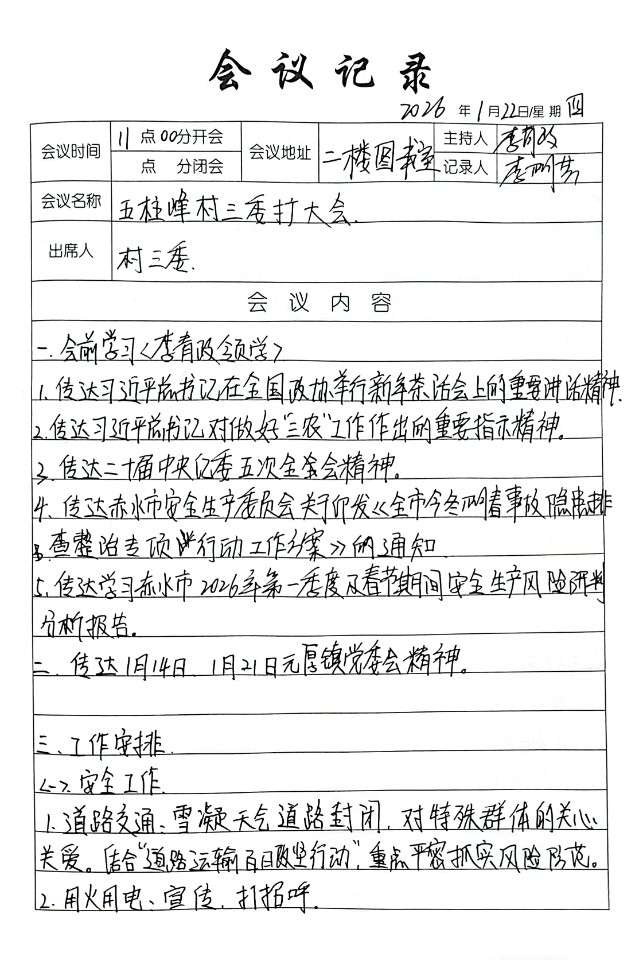 会议记录
2026年1月22日/星期四
会议时间 11点00分开会 会议地址 二楼图书室 主持人 李青政
点 分闭会 记录人 李明芸
会议名称 五柱峰村三委扩大会.
出席人 村三委.
会议内容
一.会前学习<李青政领学>
1.传达习近平总书记在全国政协举行新年茶话会上的重要讲话精神.
2.传达习近平总书记对做好"三农"工作作出的重要指示精神。
3、传达二十届中央纪委五次全会精神。
4、传达赤水市安全生产委员会关于印发《全市今冬明春事故隐患排
查整治专项行动工作方案》的通知
5.传达学习赤水市2026年第一季度及春节期间安全生产风险研判
分析报告。
二、传达1月14日、1月21日元厚镇党委会精神。
三、工作安排.
<一>.安全工作.
1.道路交通、雪凝天气道路封闭,对特殊群体的关心
关爱。结合"道路运输百日攻坚行动",重点严密抓实风险防范。
2.用火用电、宣传,打招呼.